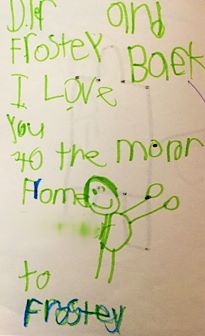 DIr and
Frostey Baek
I Love
You
to the moron
Home
to
Frostey